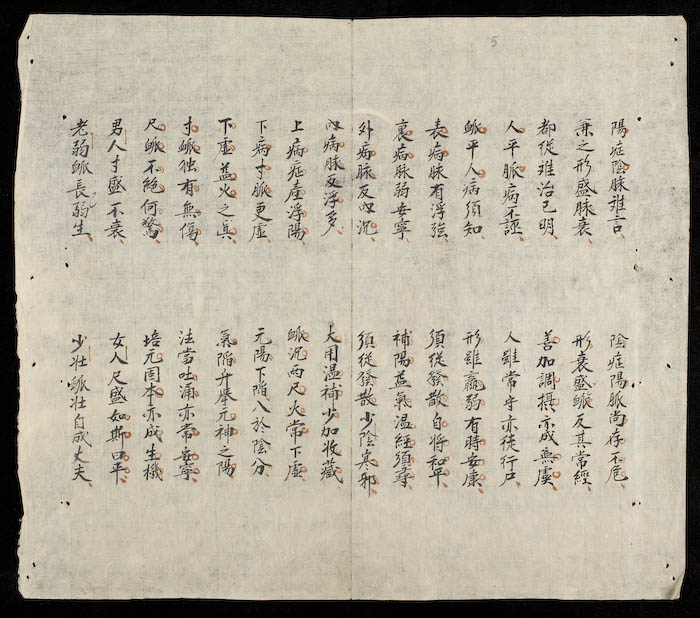 5
陽症陰脉雖言
陰症陽脉尚存不危
兼之形盛脉衰
形衰盛脉反其常經
都從难治已明
善加調摂亦成無虞
人平脈病不誣
人雖常守亦徒行尸
脉平人病須知
形雖羸弱有時安康
表病脉有浮弦
須從發散自将和平
裏病脉弱安寧
補陽益氣温經須尋
外病脉反内沉
須從發散少陰寒邪
内病脉反浮多
大用温補少加收藏
上病症產浮陽
脉沉两尺火常下虛
下病寸脉更虛
元陽下陷入於陰分
下虛益火之眞
氣陷升举元神之陽
寸脉独有無傷
法當吐涌亦常安寧
尺脉不絶何驚
培元固本亦成生機
男人寸盛不衰
女人尺盛如斯曰平
老弱脉長弱生
少壮脉壮自成丈夫